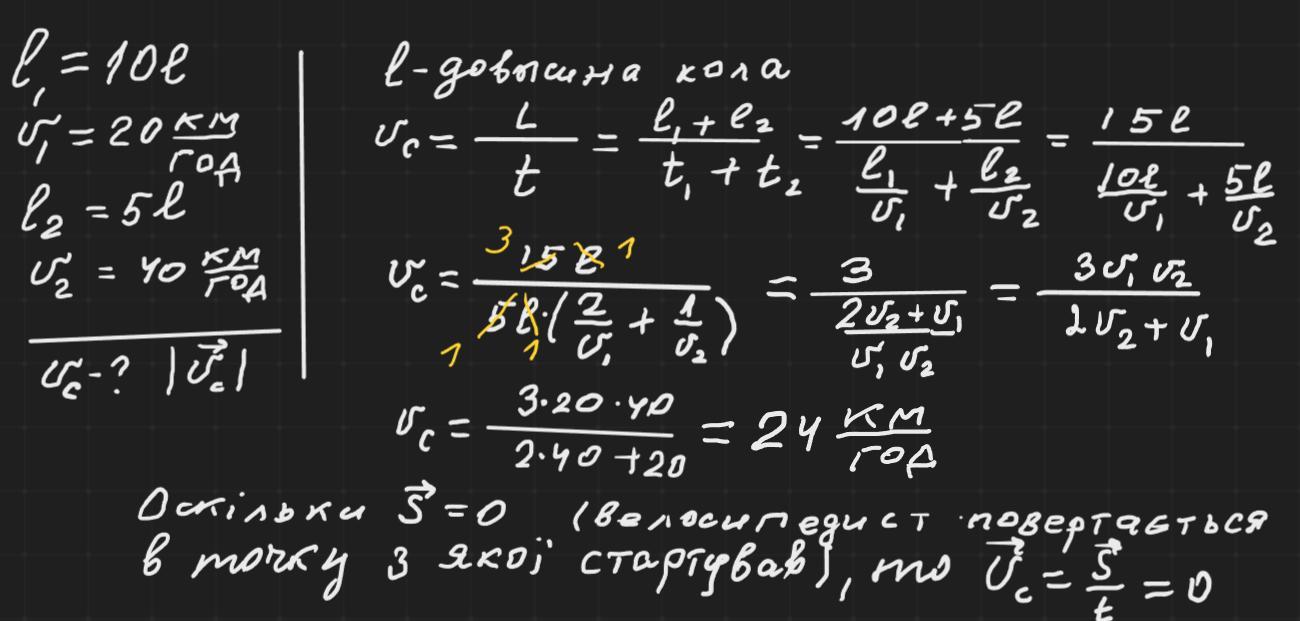 l₁ = 10l
v₁ = 20 км/год
l₂ = 5l
v₂ = 40 км/год
v_c - ? |v⃗_c|
l - довжина кола
v_c = L/t = (l₁ + l₂)/(t₁ + t₂) = (10l + 5l)/(l₁/v₁ + l₂/v₂) = 15l/(10l/v₁ + 5l/v₂)
v_c = 15l/(5l·(2/v₁ + 1/v₂)) = 3/((2v₂ + v₁)/(v₁v₂)) = 3v₁v₂/(2v₂ + v₁)
3 1
1 1
v_c = (3·20·40)/(2·40 + 20) = 24 км/год
Оскільки S⃗ = 0 (велосипедист повертається
в точку з якої стартував), то v⃗_c = S⃗/t = 0